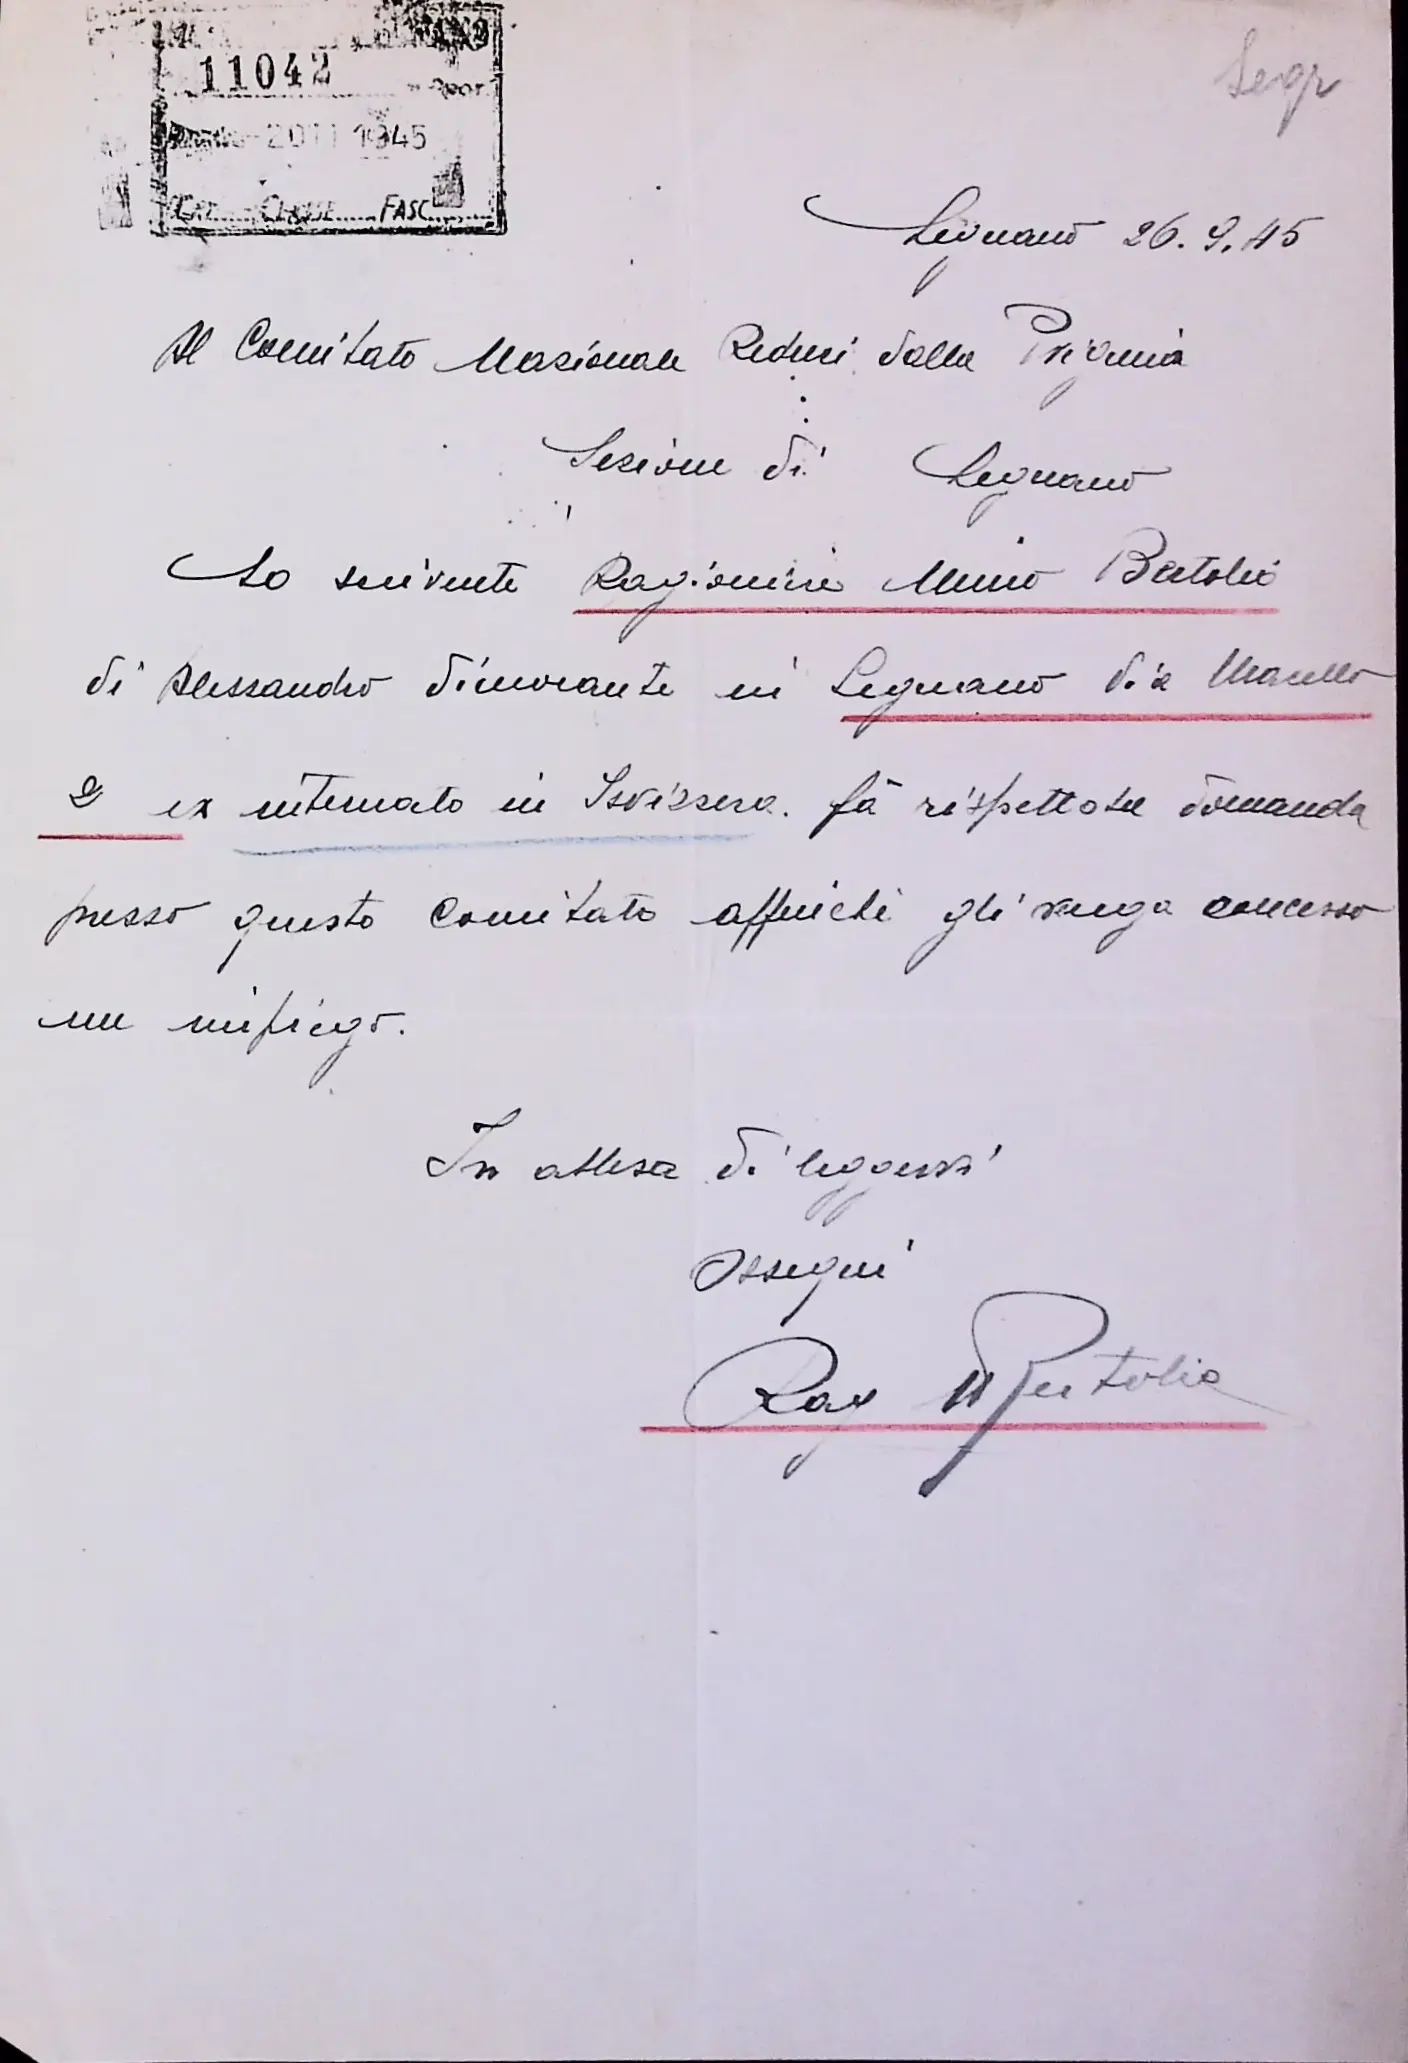 11042
20 11 1945
CAT. CLASSE FASC.
Segr
Legnano 26.9.45
Al Comitato Nazionale Reduci dalla Prigionia
Sezione di Legnano
Lo scrivente Ragioniere Bertolio
di Alessandro dimorante in Legnano via
2 ex internato in Isvizzera. fà rispettosa domanda
presso questo Comitato affinchè gli venga concesso
un impiego.
In attesa di leggervi
Ossequi
Rag M Bertolio